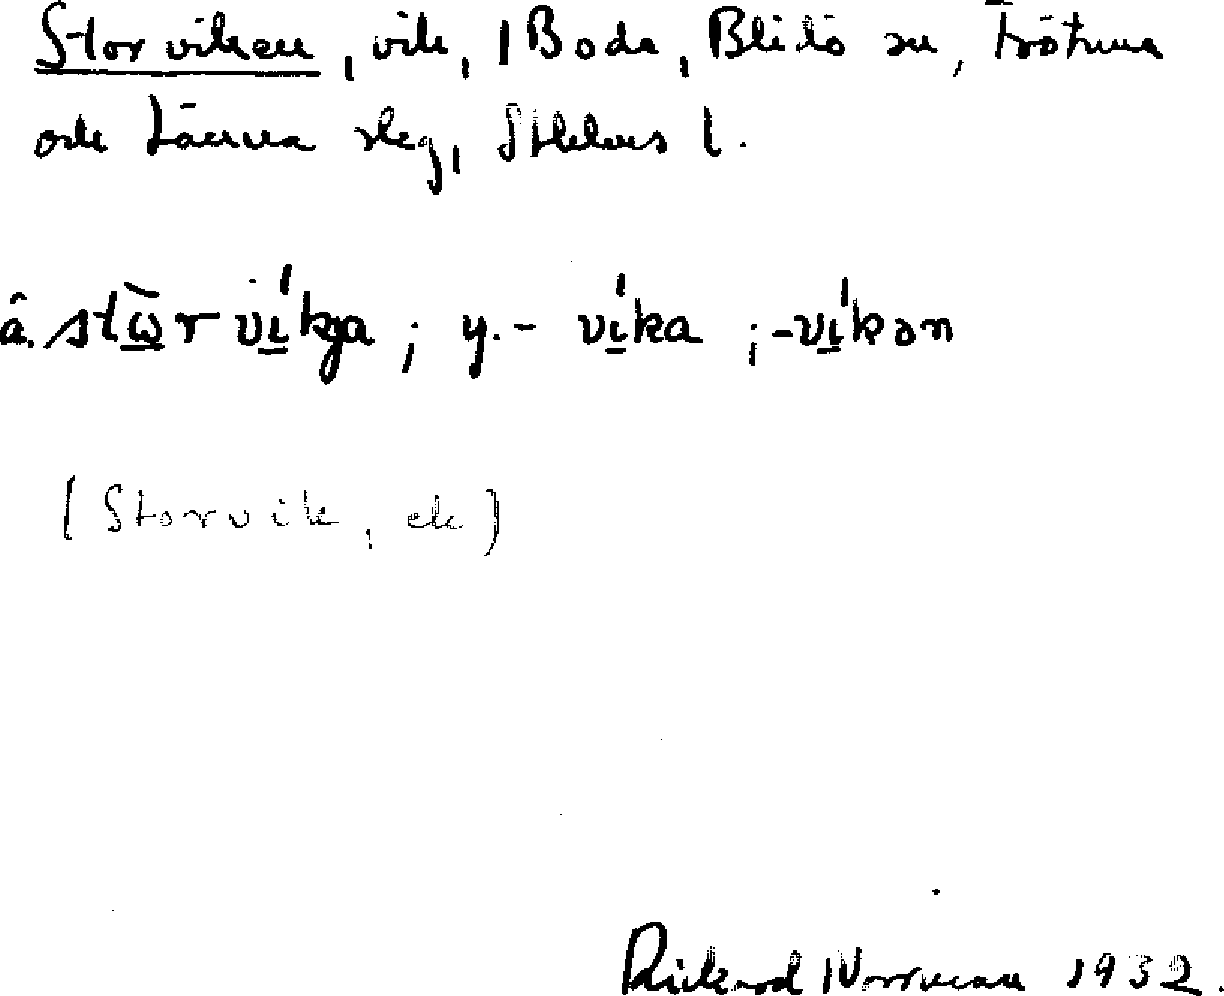 Storviken, vik, 1 Boda, Blidö sn, Frötuna
och Länna slag, Sthlms l.
â. stω̄̀r vı̲́kja ; y. - vı̲́ka ; -vı̲́kən
(Storvik, ek)
Rickard Norrman 1932.